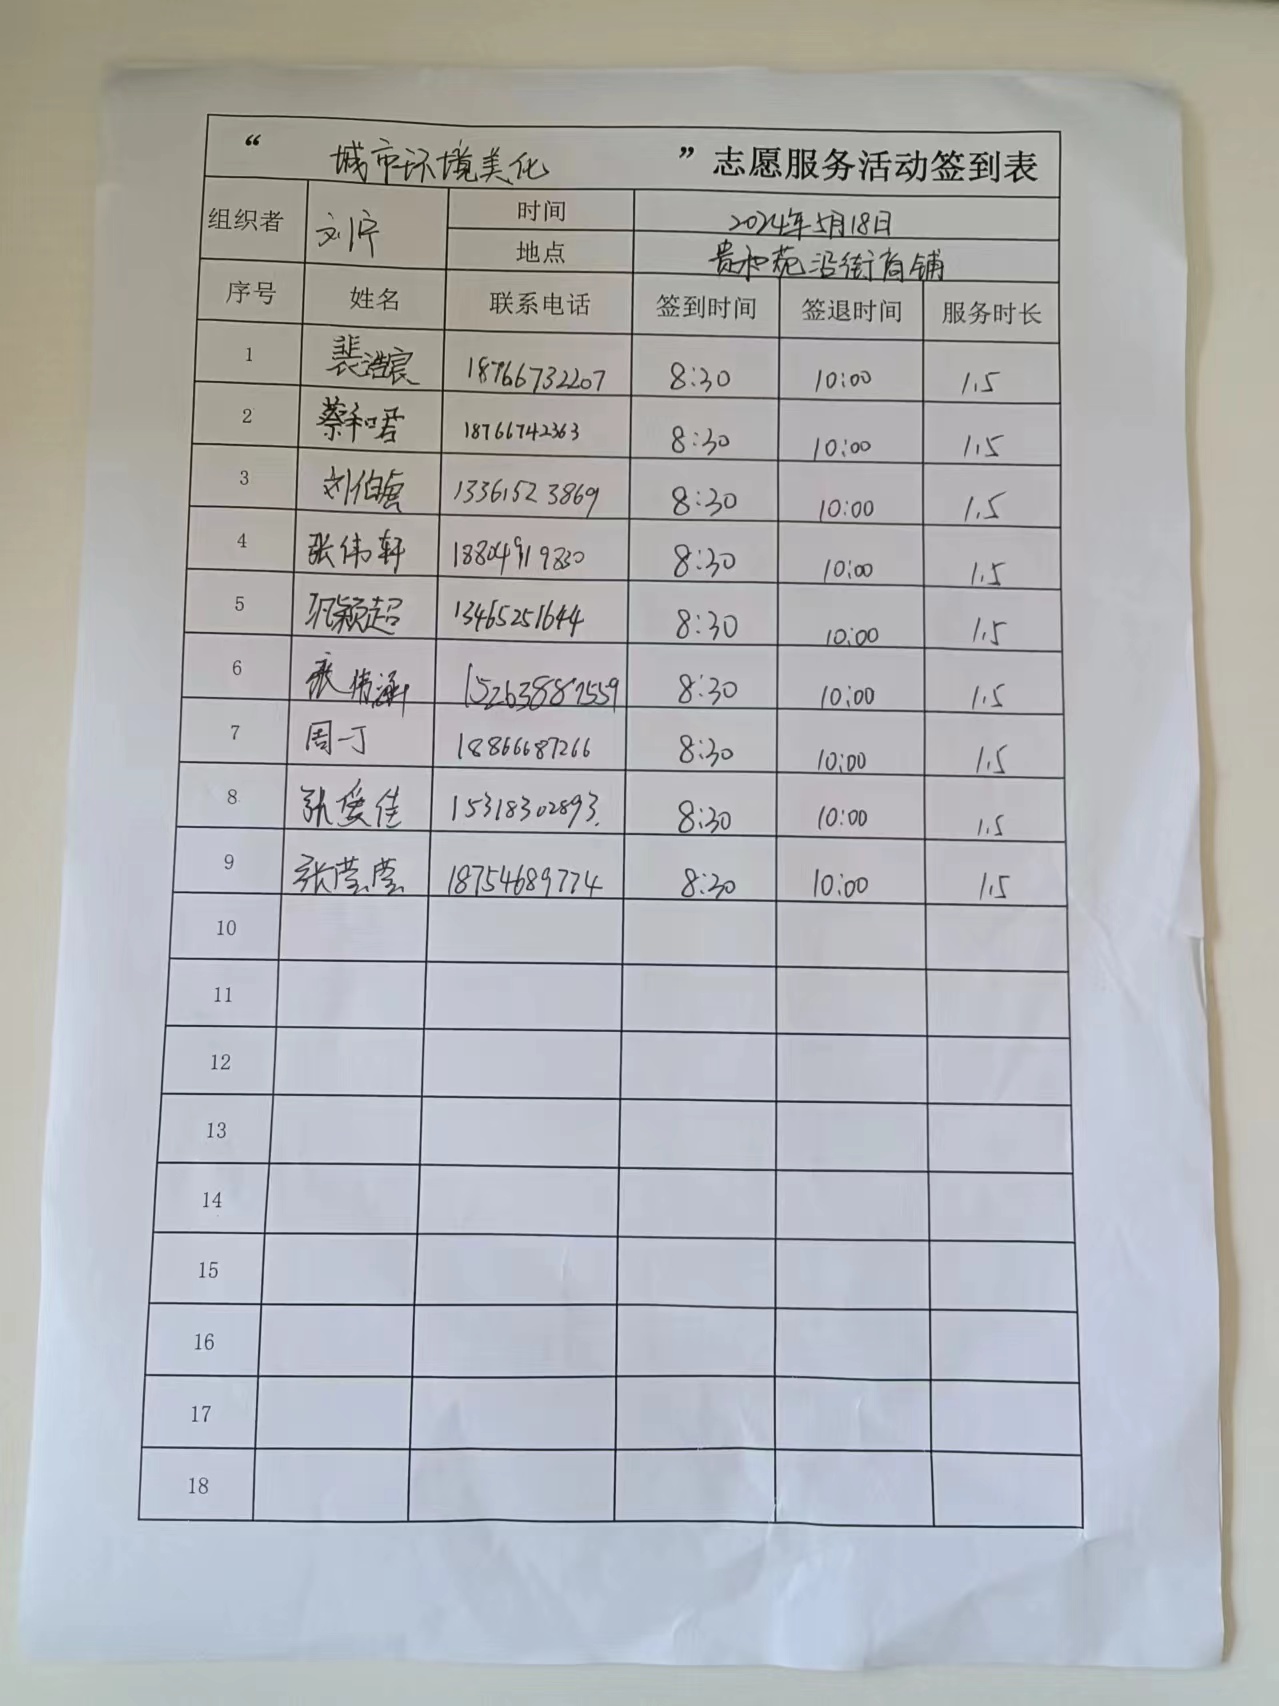 “ 城市环境美化 ”志愿服务活动签到表
组织者 刘宁 时间 2024年5月18日
地点 贵和苑沿街商铺
序号 姓名 联系电话 签到时间 签退时间 服务时长
1 裴浩宸 18766732207 8:30 10:00 1.5
2 蔡和珺 18766742363 8:30 10:00 1.5
3 刘伯 13361523869 8:30 10:00 1.5
4 张伟轩 18804919830 8:30 10:00 1.5
5 巩颖超 13465251644 8:30 10:00 1.5
6 张倩涵 15263887559 8:30 10:00 1.5
7 周一丁 18866687266 8:30 10:00 1.5
8 张爱佳 15318302893. 8:30 10:00 1.5
9 张莹莹 18754689774 8:30 10:00 1.5
10
11
12
13
14
15
16
17
18